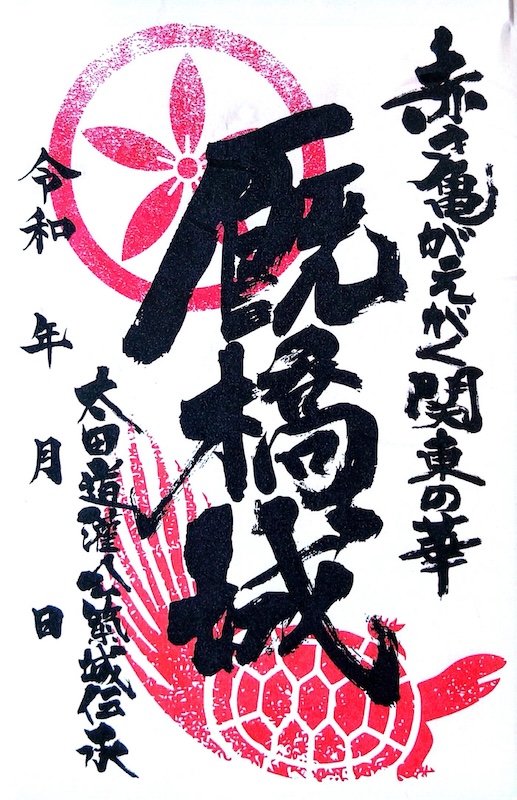 赤き亀がえがく関東の華
厩橋城
太田道灌公築城伝承
令和 年 月 日